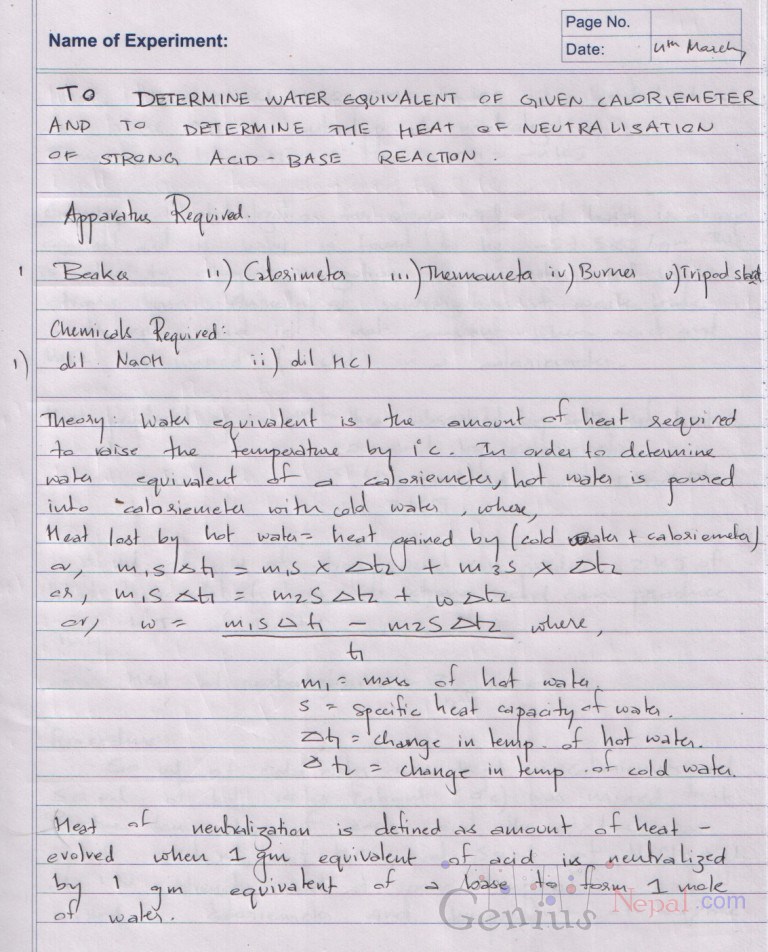 Page No.
Name of Experiment:
Date: 4th March
TO DETERMINE WATER EQUIVALENT OF GIVEN CALORIEMETER
AND TO DETERMINE THE HEAT OF NEUTRALISATION
OF STRONG ACID-BASE REACTION.
Apparatus Required.
1 Beaker ii) Calorimeter iii) Thermometer iv) Burner v) Tripod stand
Chemicals Required:
1) dil. NaOH ii) dil HCl
Theory: Water equivalent is the amount of heat required
to raise the temperature by 1°c. In order to determine
water equivalent of a caloriemeter, hot water is poured
into caloriemeter with cold water, where,
Heat lost by hot water = heat gained by (cold water + caloriemeter)
or, m1s Δt1 = m1s × Δt2 + m3s × Δt2
or, m1s Δt1 = m2s Δt2 + w Δt2
or, w = m1s Δt1 - m2s Δt2 where,
t1
m1 = mass of hot water.
s = specific heat capacity of water.
Δt1 = change in temp. of hot water.
Δt2 = change in temp. of cold water.
Heat of neutralization is defined as amount of heat -
evolved when 1 gm equivalent of acid is neutralized
by 1 gm equivalent of a base to form 1 mole
of water.
Genius Nepal.com